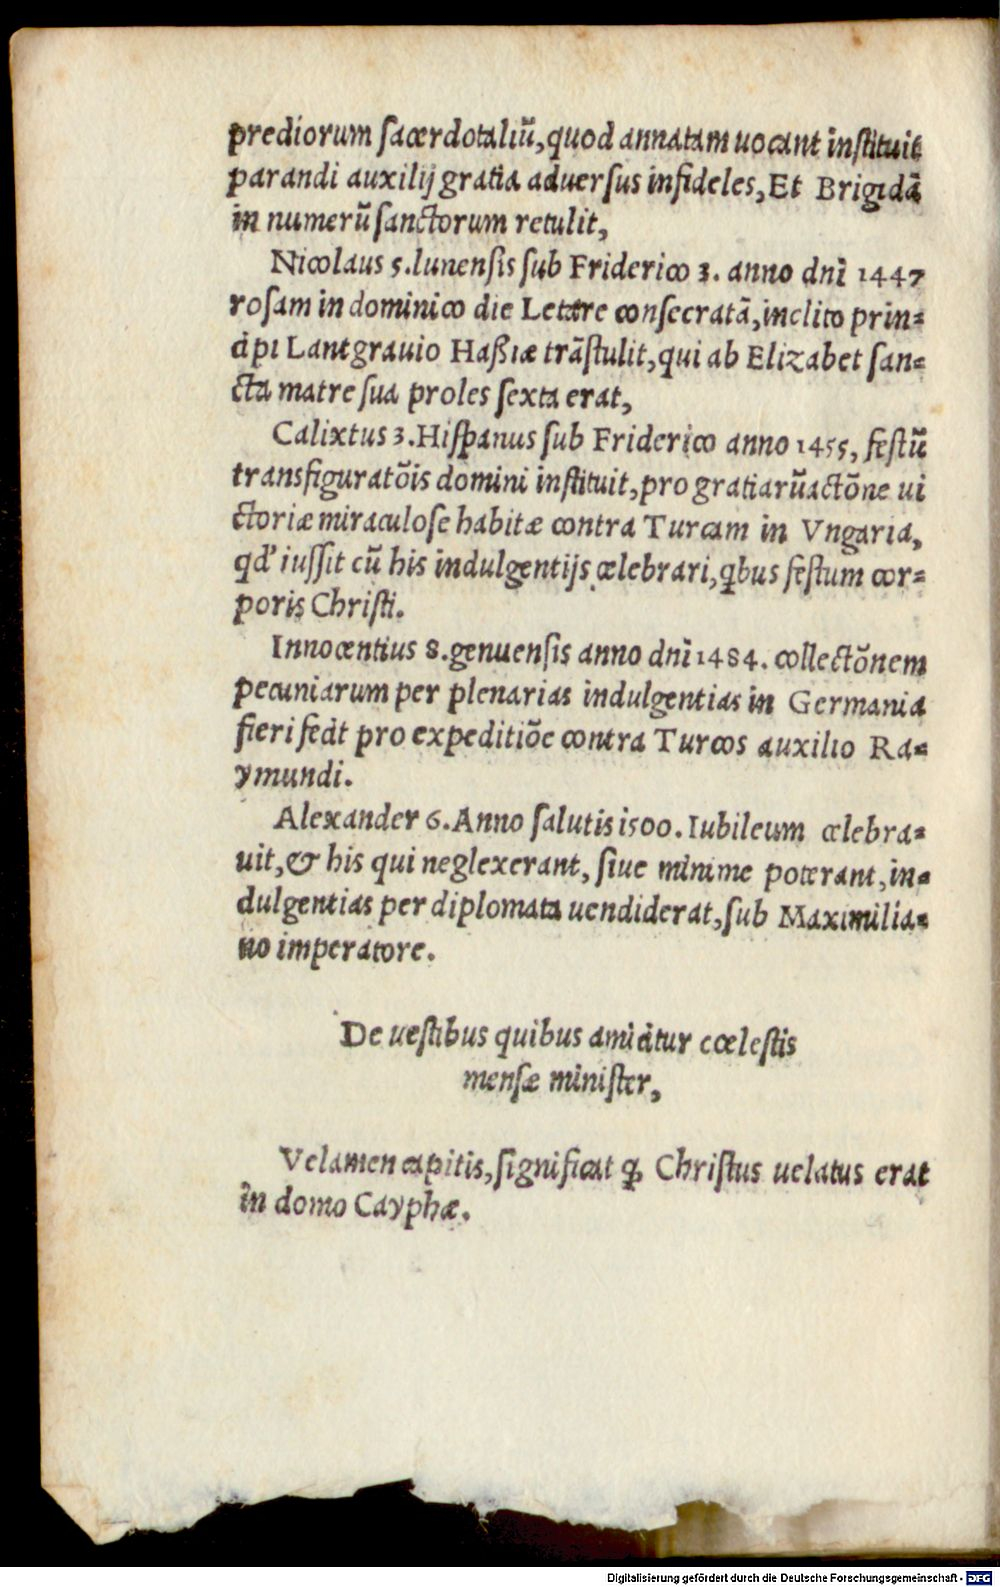 prediorum sacerdotaliũ, quod annatam uocant instituit
parandi auxilij gratia aduersus infideles, Et Brigidã
in numerũ sanctorum retulit,
Nicolaus 5. lunensis sub Friderico 3. anno dni̅ 1447
rosam in dominico die Letare consecratã, inclito prin=
cipi Lantgrauio Haßiæ trãstulit, qui ab Elizabet san=
cta matre sua proles sexta erat,
Calixtus 3. Hispanus sub Friderico anno 1455, festũ
transfiguratõis domini instituit, pro gratiarũactõne ui
ctoriæ miraculose habitæ contra Turcam in Vngaria,
qd' iussit cũ his indulgentijs celebrari, qͥbus festum cor=
poris Christi.
Innocentius 8. genuensis anno dni̅ 1484. collectõnem
pecuniarum per plenarias indulgentias in Germania
fieri fecit pro expeditiõe contra Turcos auxilio Ra=
ymundi.
Alexander 6. Anno salutis 1500. Iubileum celebra=
uit, & his qui neglexerant, siue minime poterant, in=
dulgentias per diplomata uendiderat, sub Maximilia=
no imperatore.
De uestibus quibus amicitur cœlestis
mensæ minister,
Velamen capitis, significat ꝙ Christus uelatus erat
in domo Cayphæ.
Digitalisierung gefördert durch die Deutsche Forschungsgemeinschaft - DFG